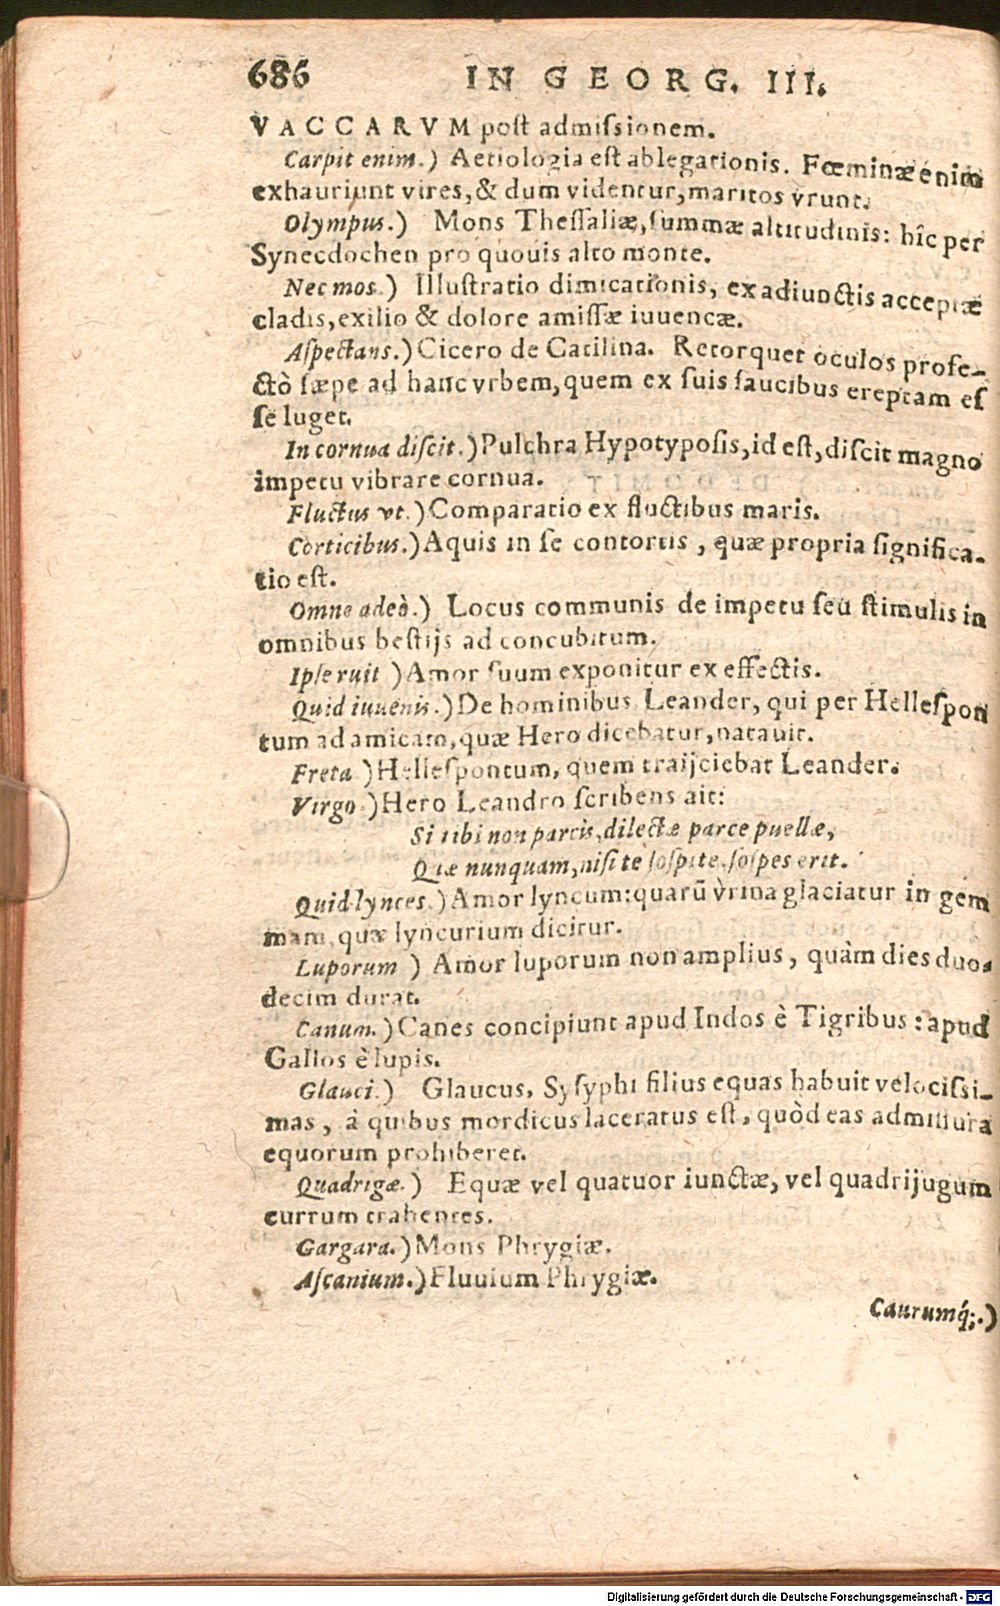 686 IN GEORG. III.
VACCARVM post admissionem.
Carpit enim.) Aetiologia est ablegationis. Fœminæ enim
exhauriunt vires, & dum videntur, maritos vrunt.
Olympus.) Mons Thessaliæ, summæ altitudinis: hîc per
Synecdochen pro quouis alto monte.
Nec mos.) Illustratio dimicationis, ex adiunctis acceptæ
cladis, exilio & dolore amissæ iuuencæ.
Aspectans.) Cicero de Catilina. Retorquet oculos profe-
ctò sæpe ad hanc vrbem, quem ex suis faucibus ereptam es
se luget.
In cornua discit.) Pulchra Hypotyposis, id est, discit magno
impetu vibrare cornua.
Fluctus vt.) Comparatio ex fluctibus maris.
Corticibus.) Aquis in se contortis, quæ propria significa-
tio est.
Omne adeò.) Locus communis de impetu seu stimulis in
omnibus bestijs ad concubitum.
Ipse ruit) Amor suum exponitur ex effectis.
Quid iuuenis.) De hominibus Leander, qui per Hellespon
tum ad amicam, quæ Hero dicebatur, natauit.
Freta) Hellespontum, quem traijciebat Leander.
Virgo.) Hero Leandro scribens ait:
Si tibi non parcis, dilectæ parce puellæ,
Quæ nunquam, nisi te sospite, sospes erit.
Quid lynces.) Amor lyncum: quarũ vrina glaciatur in gem
mam, quæ lyncurium dicitur.
Luporum) Amor luporum non amplius, quàm dies duo-
decim durat.
Canum.) Canes concipiunt apud Indos è Tigribus: apud
Gallos è lupis.
Glauci.) Glaucus, Sysyphi filius equas habuit velocissi-
mas, à quibus mordicus laceratus est, quòd eas admissura
equorum prohiberet.
Quadrigæ.) Equæ vel quatuor iunctæ, vel quadrijugum
currum trahentes.
Gargara.) Mons Phrygiæ.
Ascanium.) Fluuium Phrygiæ.
Caurumq́;.)
Digitalisierung gefördert durch die Deutsche Forschungsgemeinschaft - DFG